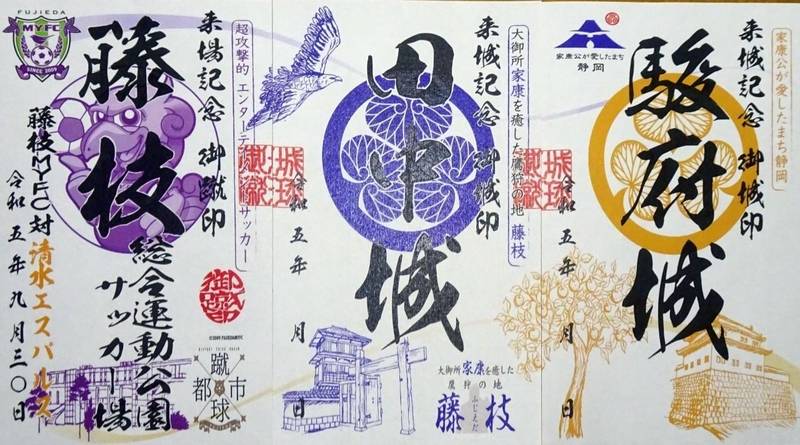 家康公が愛したまち静岡
家康公が愛したまち
静岡
来城記念 御城印
駿府城
令和五年 月 日
大御所家康を癒した鷹狩の地 藤枝
来城記念 御城印
田中城
令和五年 月 日
大御所家康を癒した
鷹狩の地
ふじえだ
藤枝
超攻撃的 エンターテイメントサッカー
来場記念 御蹴印
藤枝
総合運動公園
サッカー場
藤枝MYFC対清水エスパルス
令和五年九月三〇日
FUJIEDA
MYFC
SINCE 2009
御蹴印
蹴
都市
球